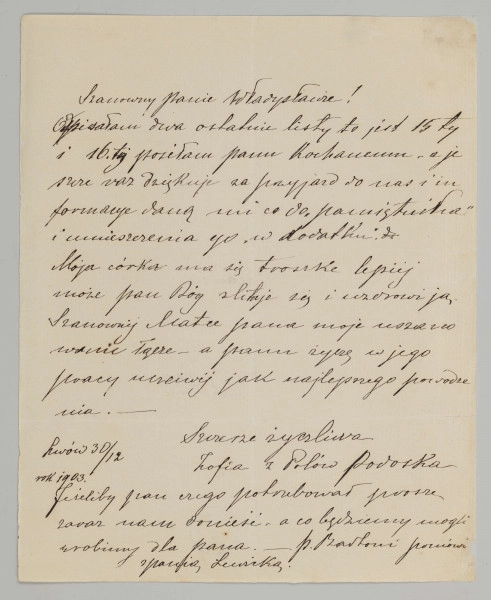 Szanowny Panie Władysławie!
Odpisałam dwa ostatnie listy to jest 15ty
i 16.ty posełam panu Kochanemu - a je
szcze raz dziękuje za przyjazd do nas i in
formacye daną mi co do „pamiętnika"
i umieszczenia go „w dodatku".
Moja córka ma się troszke lepiej
może pan Bóg zlituje się i uzdrowi ją.
Szanownej Matce pana moje uszano
wanie łącze - a panu życzę w jego
pracy uczciwej jak najlepszego powodze
nia. —
Szczerze życzliwa
Zofia z Polów Podoska
Lwów 30/12
rok 1903.
Jeżeliby pan czego potrzebował prosze
zaraz nam donieść - a co będziemy mogli
zrobimy dla pana. — p.
z panią Lewicką.